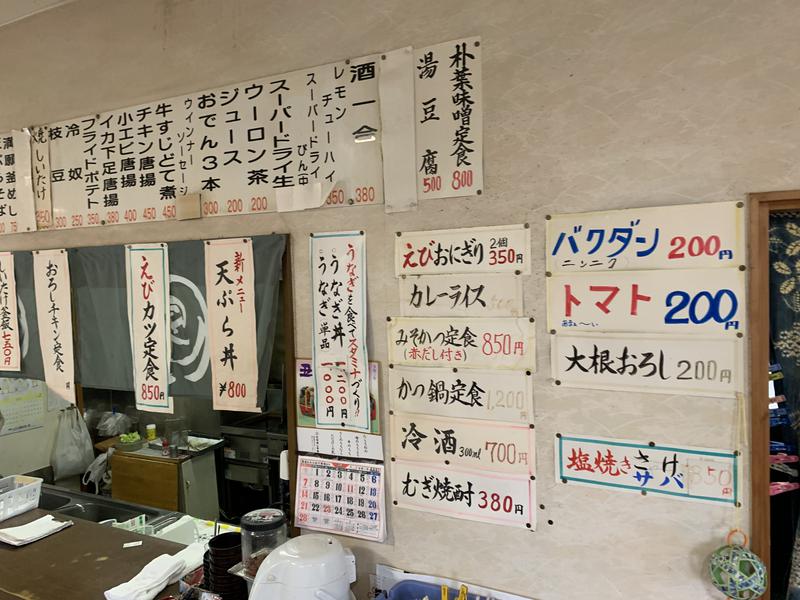 朴葉味噌定食 800
湯豆腐 500
酒一合 380
レモンチューハイ 350
スーパードライびん中
スーパードライ生
ウーロン茶 200
ジュース 200
おでん3本 300
ウィンナーソーセージ
牛すじどて煮 450
チキン唐揚 450
小エビ唐揚 400
イカ下足唐揚 380
フライドポテト 350
冷奴 250
枝豆 300
焼しいたけ 350
えびおにぎり 2個 350円
カレーライス
みそかつ定食 850円
(赤だし付き)
かつ鍋定食 1,200
冷酒 300ml 700円
むぎ焼酎 380円
バクダン 200円
ニンニク
トマト 200円
あまぁ〜い
大根おろし 200円
塩焼き さけ サバ 850円
うなぎを食べてスタミナづくり!!
うなぎ丼
うなぎ単品
新メニュー
天ぷら丼 ¥800
えびカツ定食 850円
おろしチキン定食 円
しいたけ釜飯 七五〇円